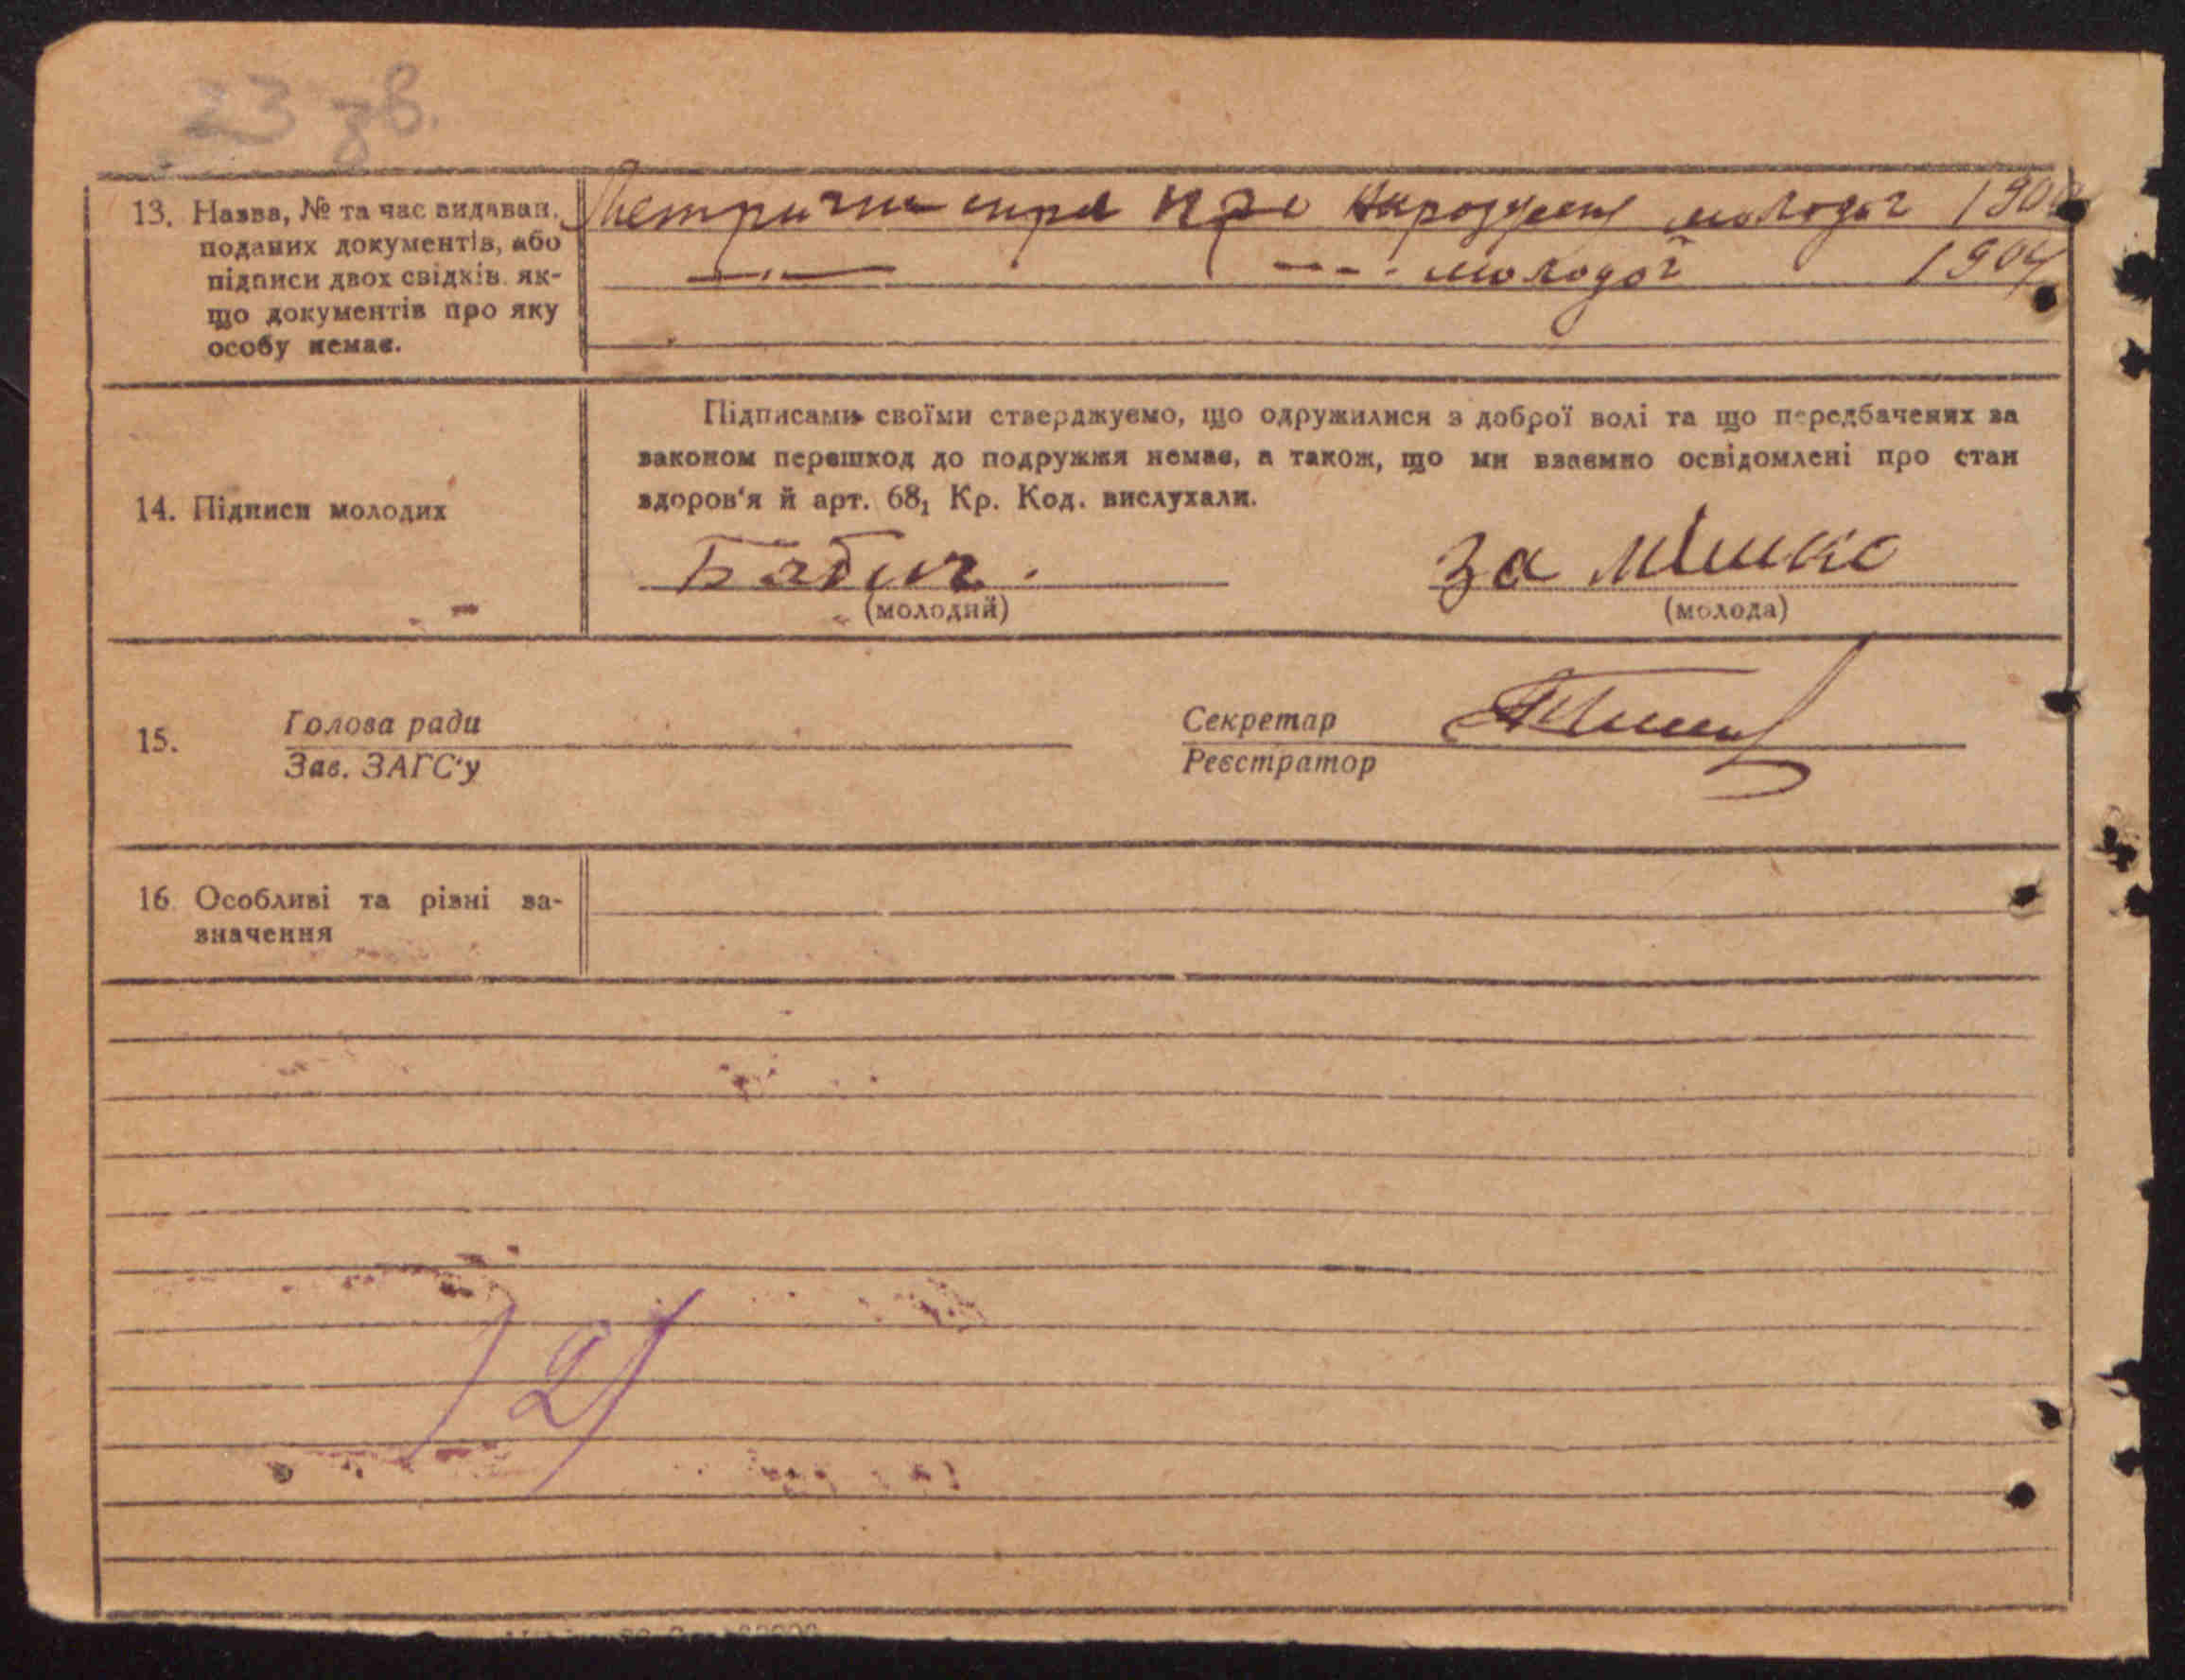 23 зв.
13. Назва, № та час видаван.
поданих документів, або
підписи двох свідків. як-
що документів про яку
особу немає.
про молодог 190
молодої 1904
14. Підписи молодих
Підписами своїми стверджуємо, що одружилися з доброї волі та що передбачених за
законом перешкод до подружжя немає, а також, що ми взаємно освідомлені про стан
здоров'я й арт. 68₁ Кр. Код. вислухали.
Бабич. За Мішко
(молодий) (молода)
15. Голова ради
Зав. ЗАГС'у
Секретар
Реєстратор
16 Особливі та різні за-
значення